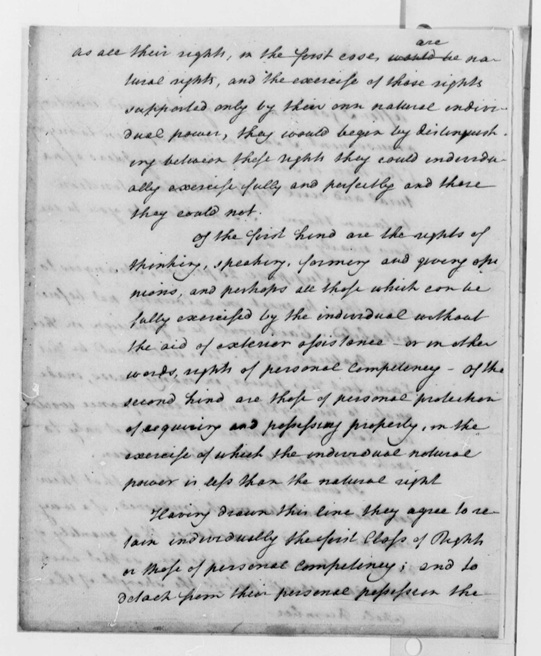 are
as all their rights, in the first case, would be na-
tural rights, and the exercise of those rights
supported only by their own natural indivi-
dual power, they would begin by distinguish-
ing between those rights they could individu-
ally exercise fully and perfectly and those
they could not.
Of the first kind are the rights of
thinking, speaking, forming and giving opi
nions, and perhaps all those which can be
fully exercised by the individual without
the aid of exterior assistance — or in other
words, rights of personal competency — Of the
second kind are those of personal protection
of acquiring and possessing property, in the
exercise of which the individual natural
power is less than the natural right
Having drawn this line they agree to re-
tain individually the first Class of Rights
or those of personal Competency; and to
detach from their personal possession the